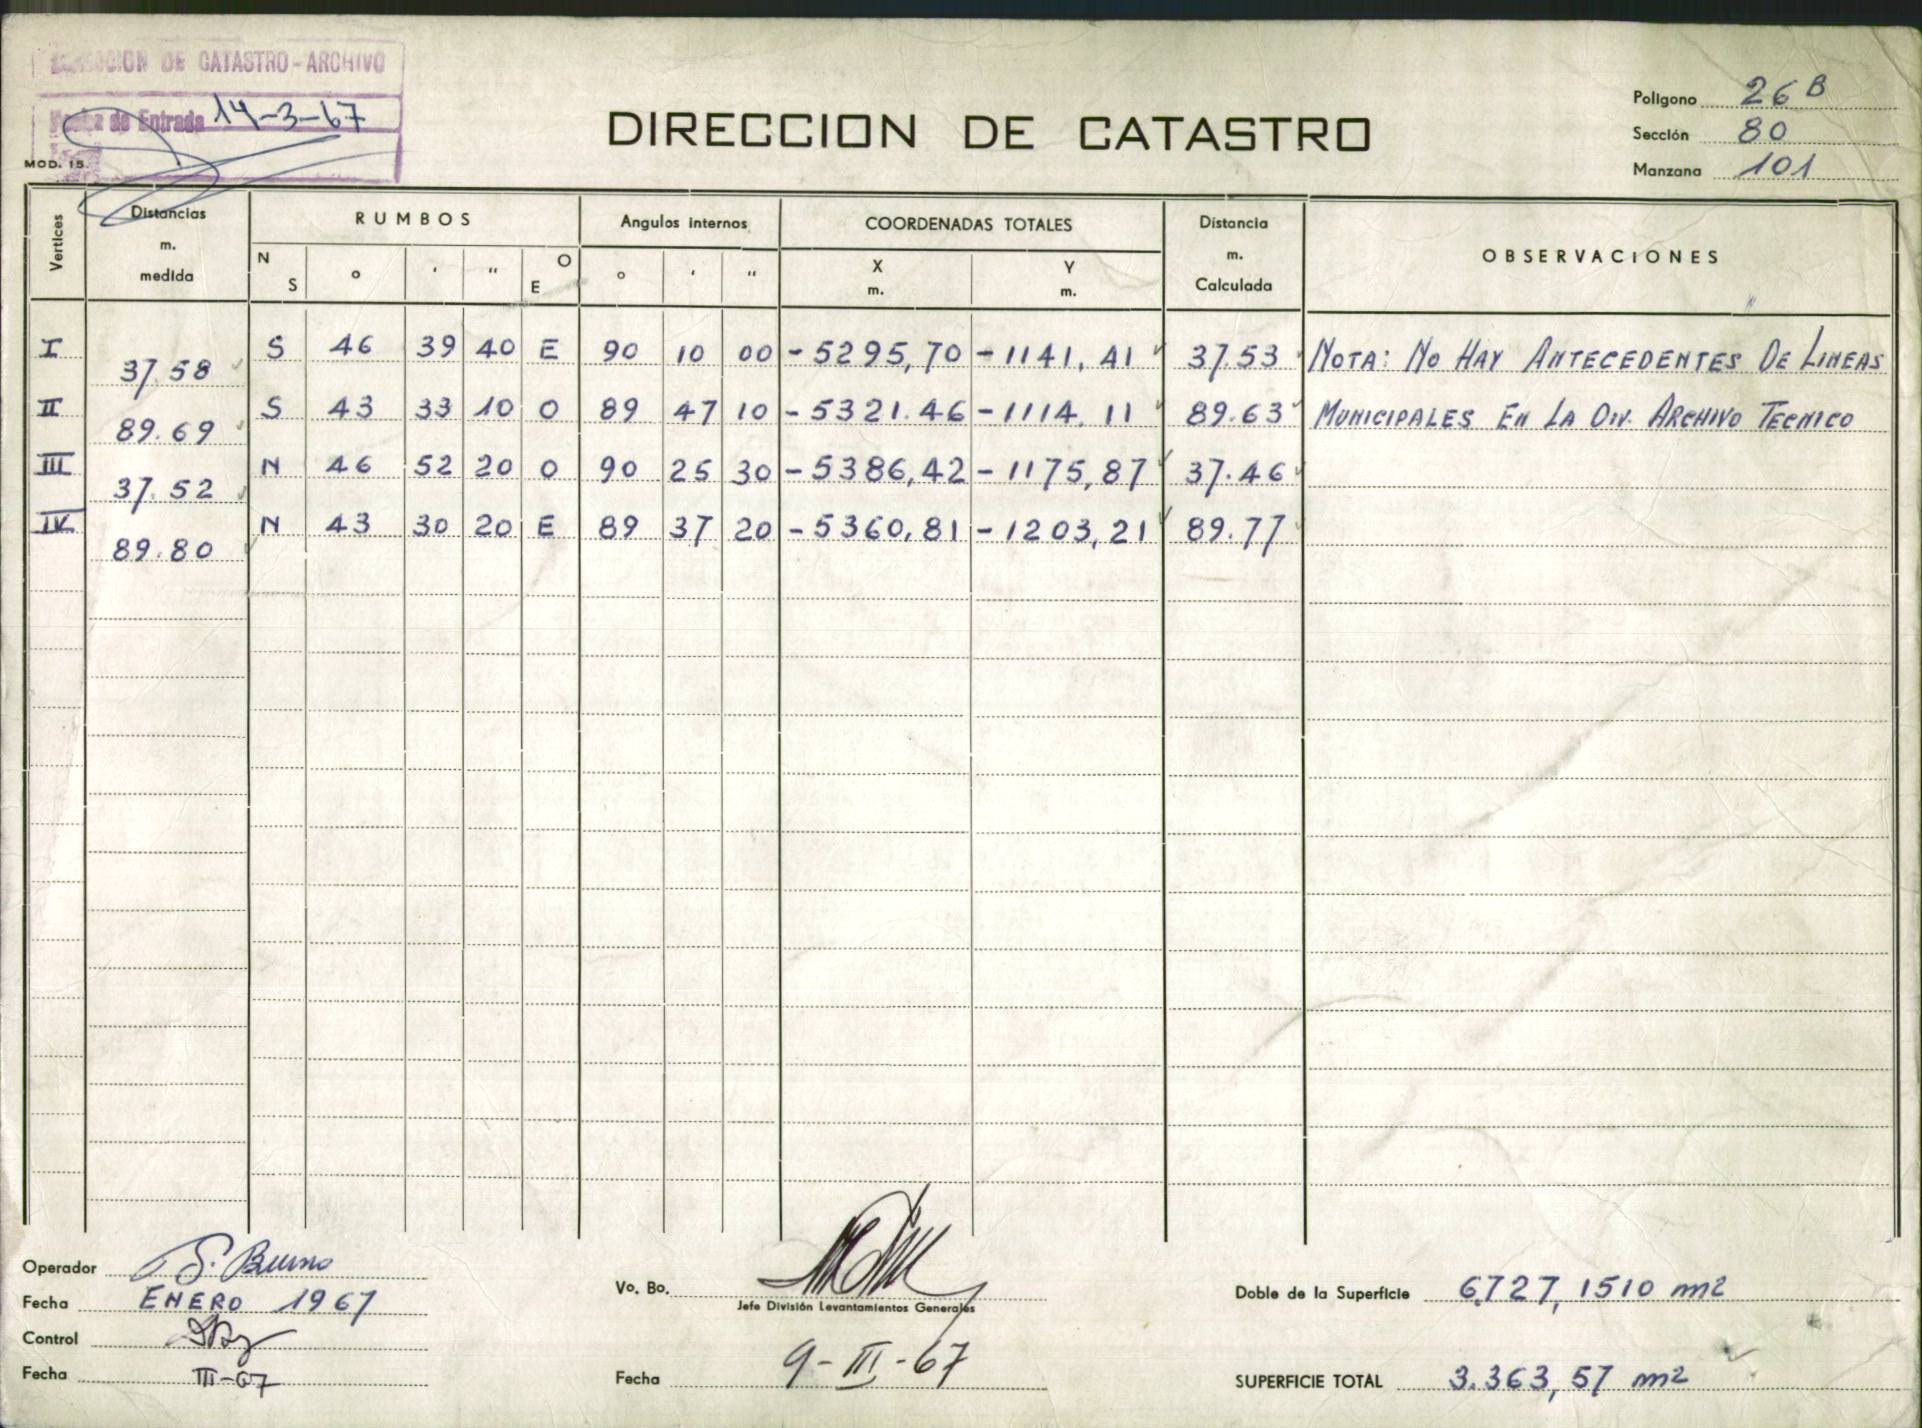 DIRECCION DE CATASTRO - ARCHIVO
Fecha de Entrada 14-3-67
MOD. 15.
DIRECCION DE CATASTRO
Poligono 26 B
Sección 80
Manzana 101
Vertices Distancias m. medida RUMBOS Angulos internos COORDENADAS TOTALES Distancia m. Calculada OBSERVACIONES
N S ° ' " O E ° ' " X m. Y m.
I 37.58 S 46 39 40 E 90 10 00 -5295,70 -1141,41 37.53 NOTA: NO HAY ANTECEDENTES DE LINEAS
II 89.69 S 43 33 10 O 89 47 10 -5321.46 -1114.11 89.63 MUNICIPALES EN LA DIV. ARCHIVO TECNICO
III 37.52 N 46 52 20 O 90 25 30 -5386,42 -1175,87 37.46
IV 89.80 N 43 30 20 E 89 37 20 -5360,81 -1203,21 89.77
Operador
Fecha ENERO 1967
Control
Fecha III-67
Vo. Bo.
Jefe División Levantamientos Generales
Fecha 9-III-67
Doble de la Superficie 6.727,1510 m2
SUPERFICIE TOTAL 3.363,57 m2